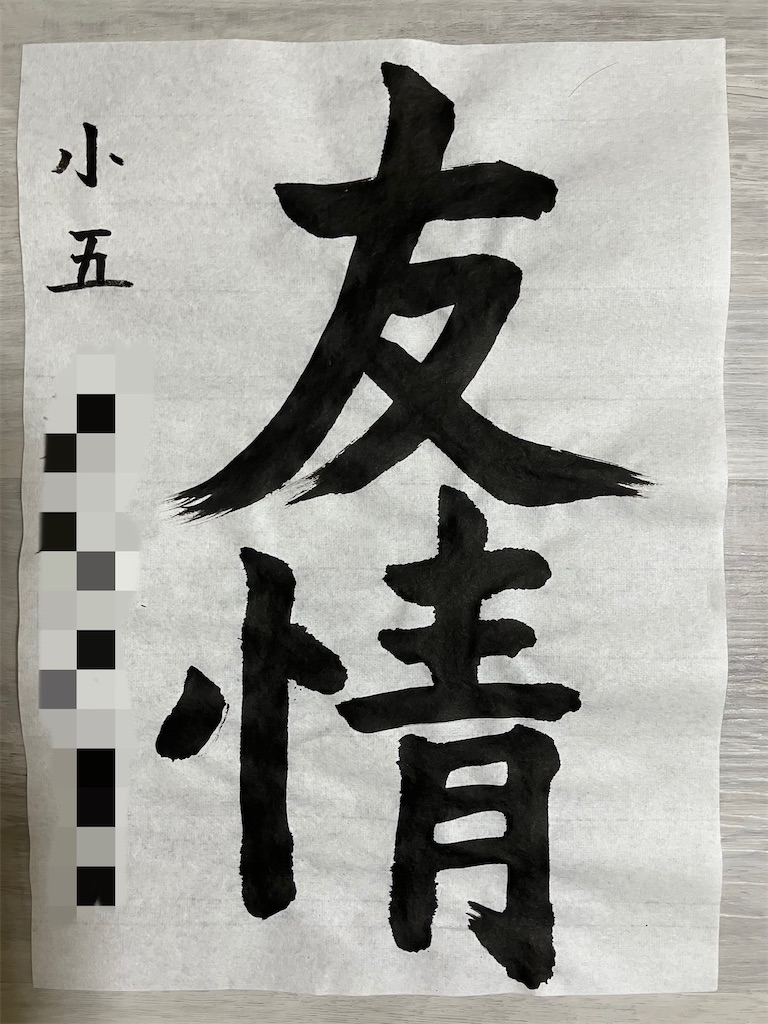 友情
小五